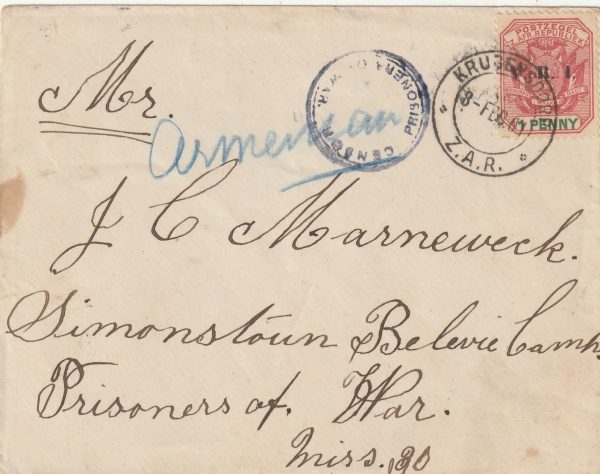 POSTZEGEL
Z. AFR. REPUBLIEK
E. R. I.
1 PENNY
KRUGERSDORP
8-FEB-01
Z.A.R.
CENSOR
PRISONERS OF WAR.
Mr.
Armenian
J C Marneweck.
Simonstown Belevie Camp.
Prisoners of War.
Miss.